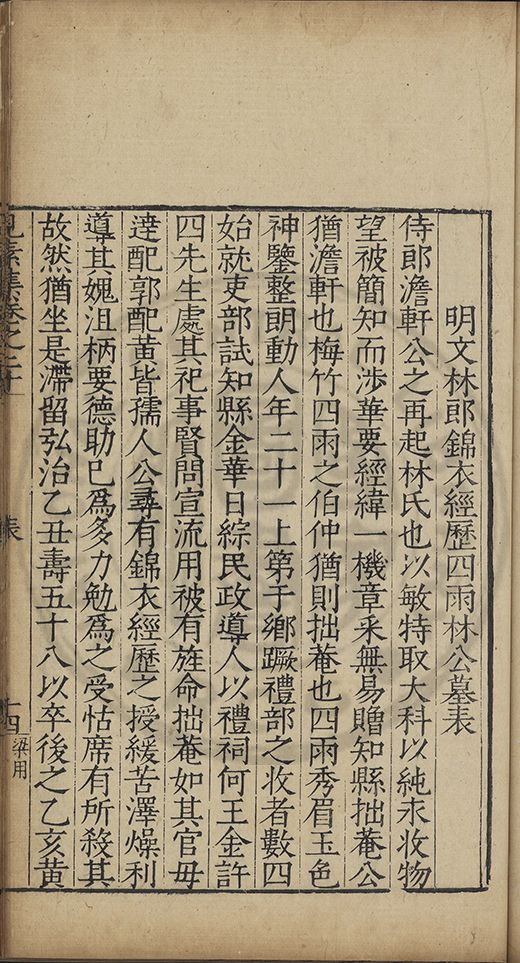 明文林郎錦衣經歷四雨林公墓表
侍郎澹軒公之再起林氏也以敏特取大科以純求收物
望被簡知而涉華要經緯一機章采無易贈知縣拙菴公
猶澹軒也梅竹四雨之伯仲猶則拙菴也四雨秀眉玉色
神鑒整朗動人年二十一上第于鄉蹶禮部之收者數四
始就吏部試知縣金華日綜民政導人以禮祠何王金許
四先生處其祀事賢問宣流用被有旌命拙菴如其官毋
逹配郭配黃皆孺人公尋有錦衣經歷之授緩苦澤燥利
導其媿沮柄要德助巳爲多力勉爲之受怙席有所殺其
故然猶坐是滯留弘治乙丑壽五十八以卒後之乙亥黃
見素集卷之二十
表
十四
梁用